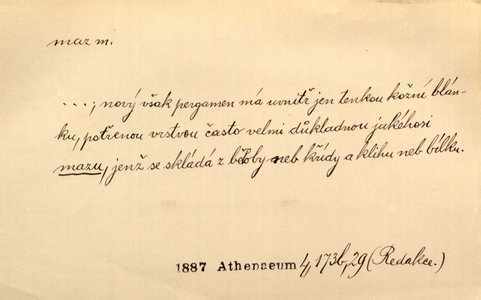 maz m.
...; nový však pergamen má uvnitř jen tenkou kožní blán-
ku, potřenou vrstvou často velmi důkladnou jakéhosi
mazu, jenž se skládá z běloby neb křídy a klihu neb bílku.
1887 Athenaeum 4, 173b, 29 (Redakce.)